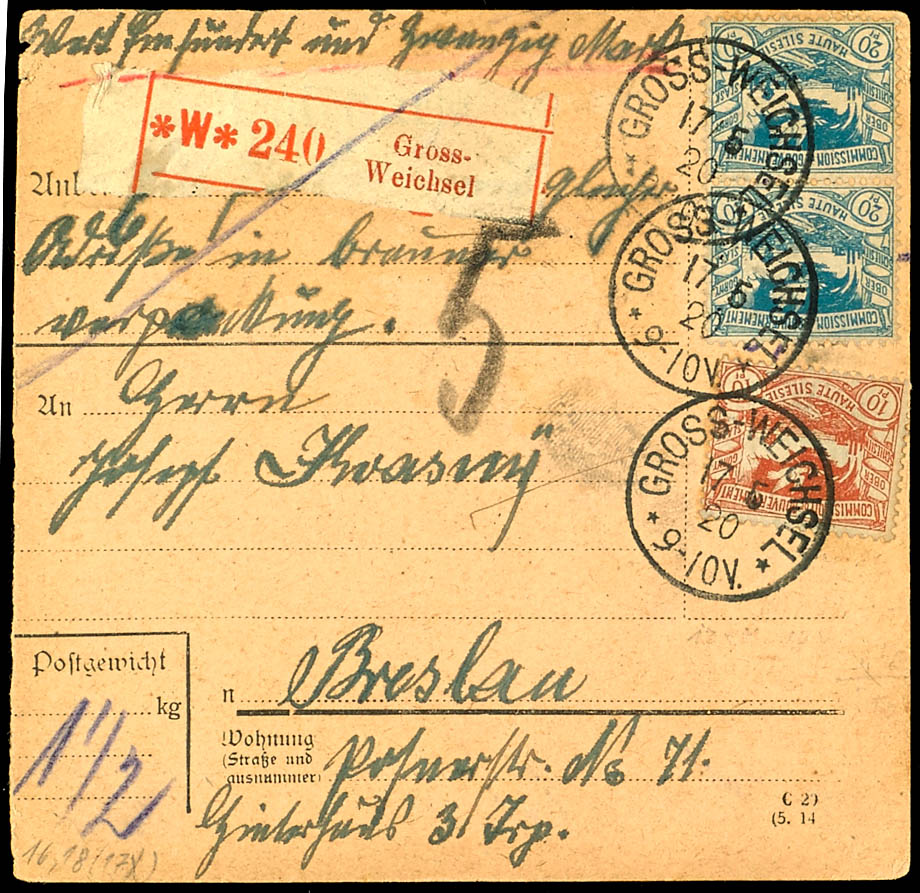 Wert Einhundert und Zwanzig Mark
*W* 240
Gross-
Weichsel
gleicher
Adreße in brauner
verpackung.
An Herrn
Joseph Kwasny
5
Postgewicht
kg
1 1/2
n Breslau
Wohnung
(Straße und
ausnummer)
Posnerstr. No 71.
Hinterhaus 3. Trp.
C 29
(5. 14
GROSS-WEICHSEL
17 6
20
GROSS-WEICHSEL
17 6
20
9-10V.
GROSS-WEICHSEL
17 6
20
9-10V.
20 PF
HAUTE SILESIE
COMMISSION GOUVERNEMENT
20 PF
HAUTE SILESIE
COMMISSION GOUVERNEMENT
10 PF
HAUTE SILESIE
COMMISSION GOUVERNEMENT